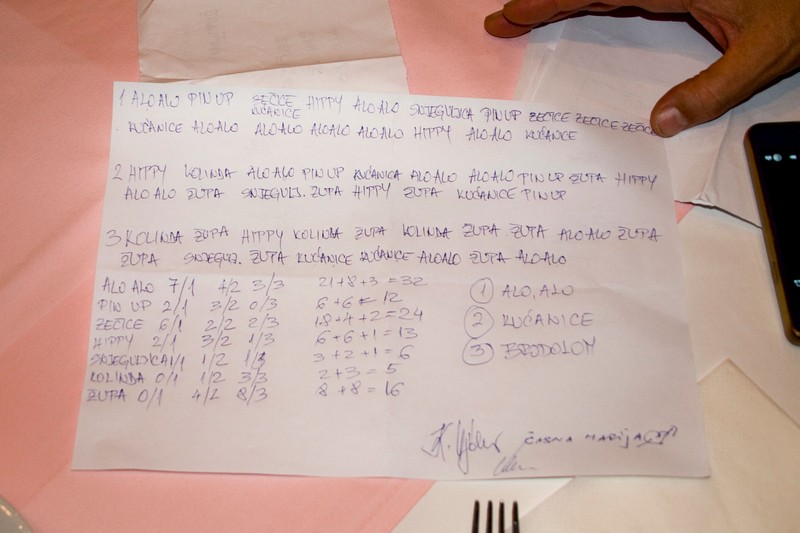 1 ALO ALO PIN UP ZEČICE HIPPY ALO ALO SNJEGULJICA PIN UP ZEČICE ZEČICE ZEČICE
KUĆANICE
KUĆANICE ALO ALO ALO ALO ALO ALO ALO ALO HIPPY ALO ALO KUĆANICE
2 HIPPY KOLINDA ALO ALO PIN UP KUĆANICA ALO ALO ALO ALO PIN UP ŽUTA HIPPY
ALO ALO ŽUTA SNJEGULJ. ŽUTA HIPPY ŽUTA KUĆANICE PIN UP
3 KOLINDA ŽUTA HIPPY KOLINDA ŽUTA KOLINDA ŽUTA ŽUTA ALO ALO ŽUTA
ŽUTA SNJEGULJ. ŽUTA KUĆANICE KUĆANICE ALO ALO ŽUTA ALO ALO
ALO ALO 7/1 4/2 3/3 21+8+3=32
PIN UP 2/1 3/2 0/3 6+6=12
ZEČICE 6/1 2/2 2/3 18+4+2=24
HIPPY 2/1 3/2 1/3 6+6+1=13
SNJEGULJICA 1/1 1/2 1/3 3+2+1=6
KOLINDA 0/1 1/2 3/3 2+3=5
ŽUTA 0/1 4/2 8/3 8+8=16
1 ALO, ALO
2 KUĆANICE
3 BRODOLOM
ČASNA MARIJA